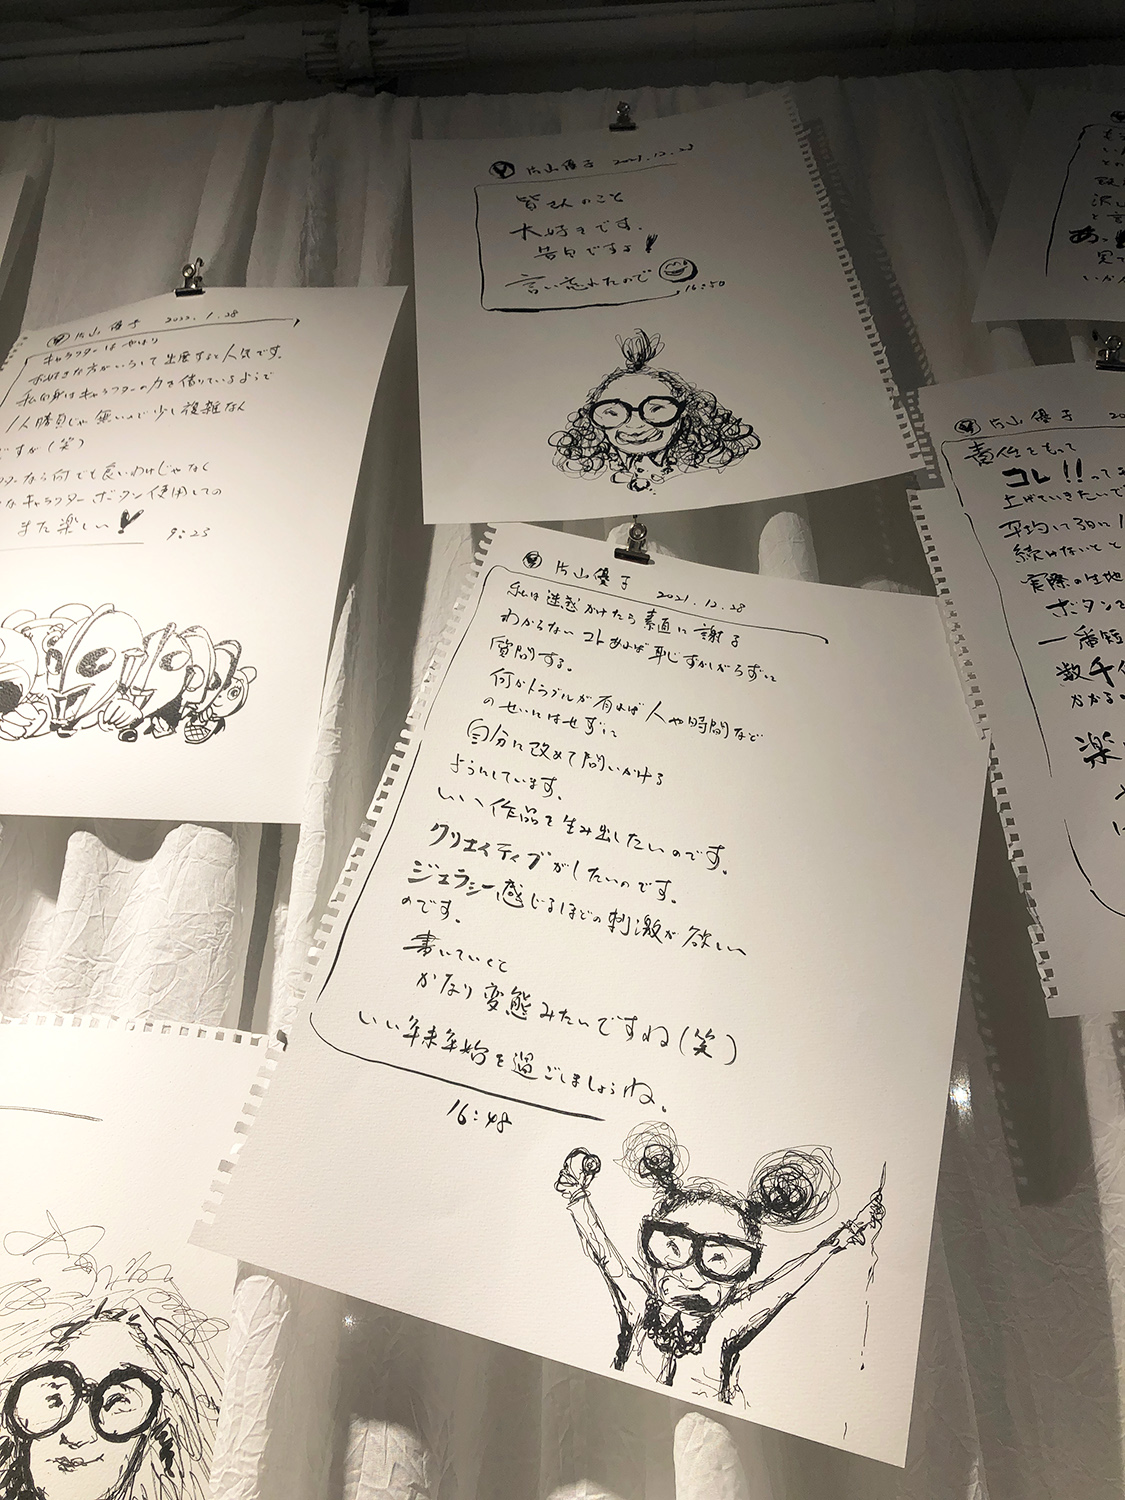 片山優子 2021.12.28
皆さんのこと
大好きです。
告白ですよ!
言い忘れたので
16:50
片山優子 2022.1.28
キャラクターはやはり
お好きな方がいらして出展すると人気です。
私自身はキャラクターの力を借りているようで
1人勝負じゃ無いので少し複雑なん
ですが(笑)
ターなら何でも良いわけじゃなく
なキャラクターボタン使用しての
また楽しい!
9:25
片山優子 2021.12.28
私は迷惑かけたら素直に謝る
わからないコトあれば恥ずかしがらずに
質問する。
何かトラブルが有れば人や時間など
のせいにはせずに
自分に改めて問いかける
ようにしています。
いい作品を生み出したいのです。
クリエイティブがしたいのです。
ジェラシー感じるほどの刺激が欲しい
のです。
書いていくと
かなり変態みたいですね(笑)
いい年末年始を過ごしましょうね。
16:48
片山優子
責任をもって
コレ!!って
上げていきたいで
平均して3日に1
続けないと
実際の生地
ボタンを
一番短
数千
かかる
楽